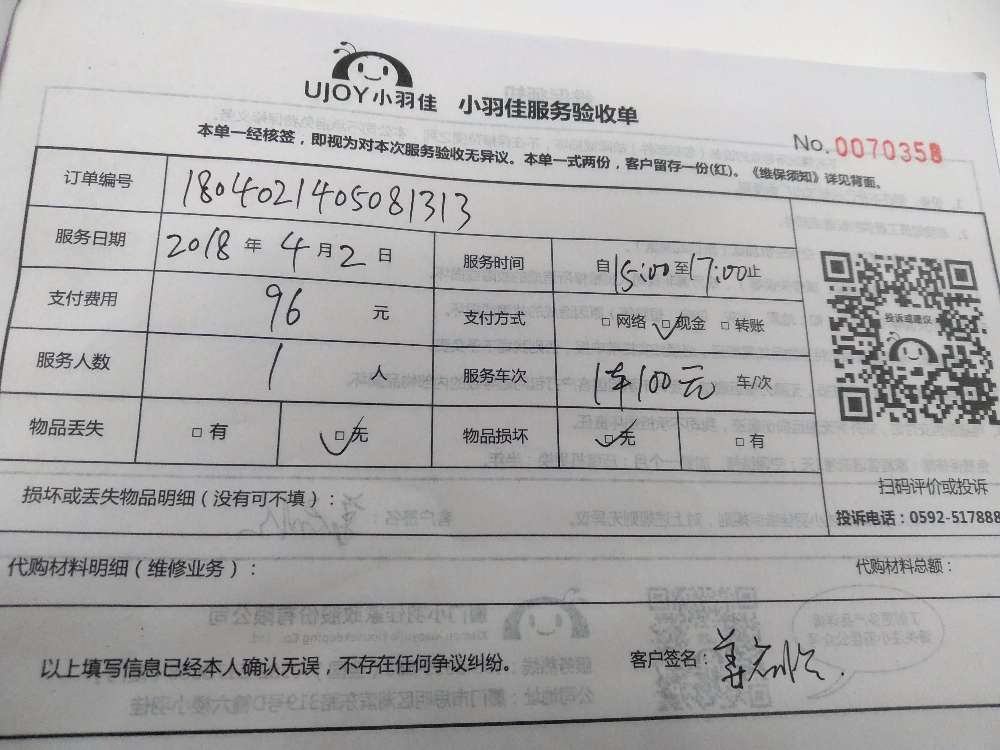 UJOY小羽佳 小羽佳服务验收单
No.0070358
本单一经核签，即视为对本次服务验收无异议。本单一式两份，客户留存一份(红)。《维保须知》详见背面。
订单编号 1804021405081313
服务日期 2018年4月2日 服务时间 自15:00至17:00止
支付费用 96 元 支付方式 □网络 □现金 □转账
服务人数 1 人 服务车次 1车100元 车/次
物品丢失 □有 □无 物品损坏 □无 □有
投诉或建议
扫码评价或投诉
投诉电话：0592-517888
损坏或丢失物品明细（没有可不填）：
代购材料明细（维修业务）： 代购材料总额：
以上填写信息已经本人确认无误，不存在任何争议纠纷。 客户签名：